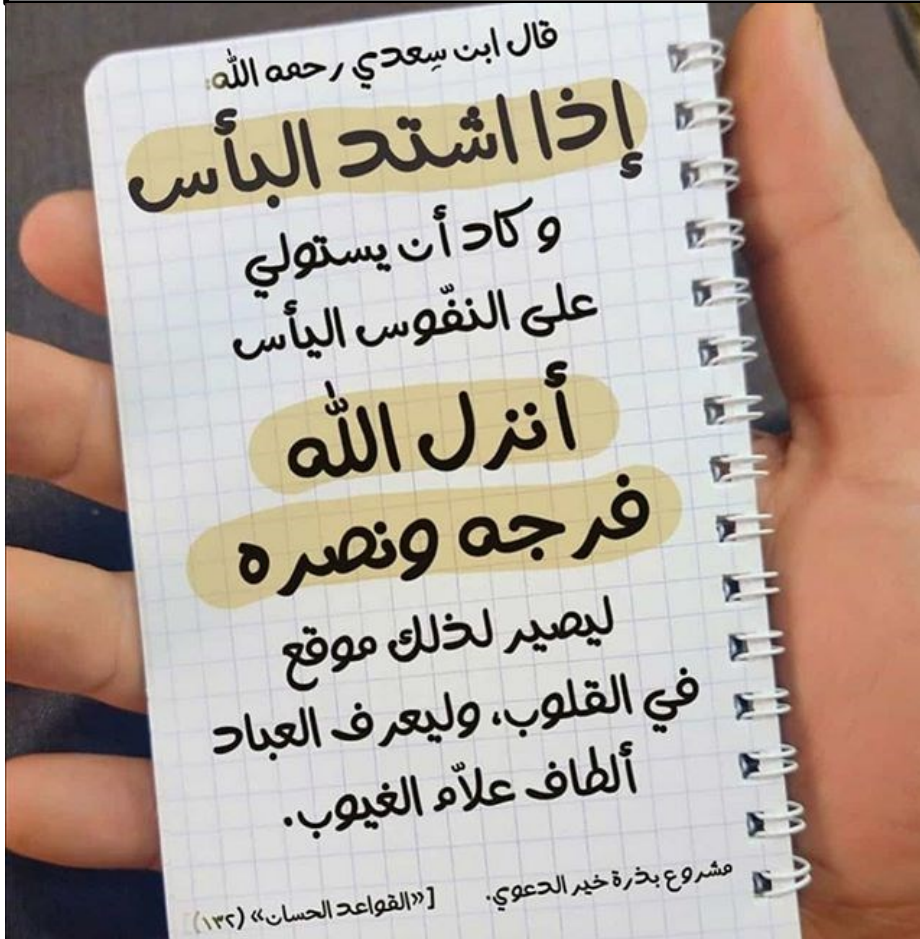 قال ابن سِعدي رحمه الله:
إذا اشتد البأس
وكاد أن يستولي
على النفّوس اليأس
أنزل الله
فرجه ونصره
ليصير لذلك موقع
في القلوب، وليعرف العباد
ألطاف علاّم الغيوب.
مشروع بذرة خير الدعوي. [«القواعد الحسان» (١٣٢)